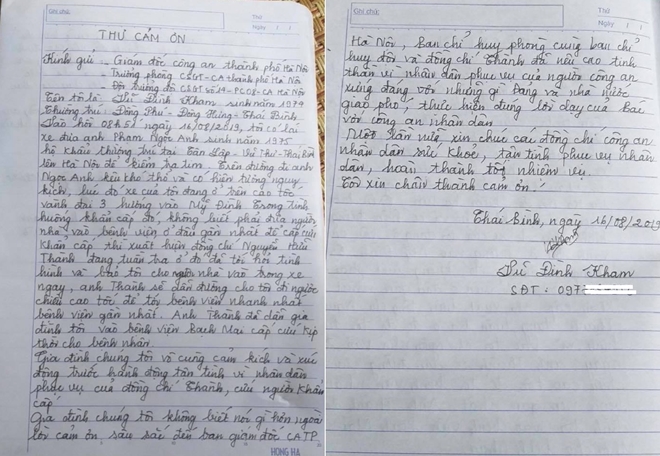 Ghi chú:
Thứ
Ngày / /
THƯ CẢM ƠN
Kính gửi - Giám đốc công an thành phố Hà Nội
- Trưởng phòng CSGT-CA thành phố Hà Nội
- Đội trưởng đội CSGT số 14 - PC08 - CA Hà Nội
Tên tôi là: Đình Kham sinh năm 1974
Thường trú: Đông Phú - Đông Hưng - Thái Bình.
Vào hồi 08h51 ngày 16/08/2019, tôi có lái
xe đưa anh Phạm Ngọc Anh sinh năm 1975
hộ khẩu thường trú tại Tân Lập - Vũ Thư - Thái Bình
lên Hà Nội để kiểm tra tim. Trên đường đi anh
Ngọc Anh kêu khó thở và có hiện tượng nguy
kịch, lúc đó xe của tôi đang ở trên cao tốc
vành đai 3 hướng vào Mỹ Đình. Trong tình
huống khẩn cấp đó, không biết phải đưa người
nhà vào bệnh viện ở đâu gần nhất để cấp cứu
khẩn cấp thì xuất hiện đồng chí Nguyễn Hữu
Thành đang tuần tra ở đó đã tới hỏi tình
hình và bảo tôi cho người nhà vào trong xe
ngay, anh Thành sẽ dẫn đường cho tôi đi ngược
chiều cao tốc để tới bệnh viện nhanh nhất
bệnh viện gần nhất. Anh Thành đã dẫn gia
đình tôi vào bệnh viện Bạch Mai cấp cứu kịp
thời cho bệnh nhân.
Gia đình chúng tôi vô cùng cảm kích và xúc
động trước hành động tận tình vì nhân dân
phục vụ của đồng chí Thành, cứu người khẩn
cấp
Gia đình chúng tôi không biết nói gì hơn ngoài
lời cảm ơn sâu sắc đến ban giám đốc CATP.
HỒNG HÀ
Ghi chú:
Thứ
Ngày / /
Hà Nội, Ban chỉ huy phòng cùng ban chỉ
huy đội và đồng chí Thành đã nêu cao tinh
thần vì nhân dân phục vụ của người công an
xứng đáng với những gì Đảng và nhà nước
giao phó, thực hiện đúng lời dạy của Bác
với công an nhân dân.
Một lần nữa, xin chúc các đồng chí công an
nhân dân sức khoẻ, tận tình phục vụ nhân
dân, hoàn thành tốt nhiệm vụ.
Tôi xin chân thành cảm ơn!
Thái Bình, ngày 16/08/2019
Đình Kham
SĐT: 097